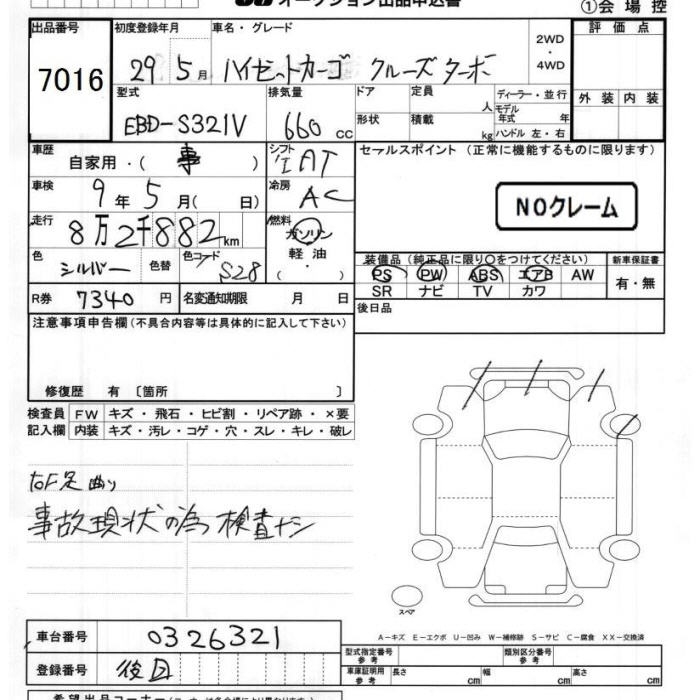 オークション出品申込書
①会場控
出品番号 7016
初度登録年月 29年5月
車名・グレード ハイゼットカーゴ クルーズターボ
2WD・4WD
評価点
外装 内装
型式 EBD-S321V
排気量 660 cc
ドア
形状
定員 人
積載 kg
ディーラー・並行
モデル年式 年
ハンドル 左・右
車歴 自家用・(事)
シフト AT
セールスポイント (正常に機能するものに限ります)
NOクレーム
車検 9年5月( 日)
冷房 AC
走行 8万2千882km
燃料 ガソリン 軽油・( )
色 シルバー 色替
色コード S28
装備品(純正品に限り〇をつけてください)
新車保証書
PS PW ABS エアB AW
SR ナビ TV カワ
有・無
R券 7340円
名変通知期限 月 日
後日品
注意事項申告欄(不具合内容等は具体的に記入して下さい)
修復歴 有 〔箇所 〕
検査員 FW キズ・飛石・ヒビ割・リペア跡・×要
記入欄 内装 キズ・汚レ・コゲ・穴・スレ・キレ・破レ
右F足曲り
事故現状の為検査ナシ
スペア
A-キズ E-エクボ U-凹み W-補修跡 S-サビ C-腐食 XX-交換済
車台番号 0326321
登録番号 後日
型式指定番号 参考
類別区分番号 参考
車庫証明用 参考 長さ cm 幅 cm 高さ cm
希望出品コーナー